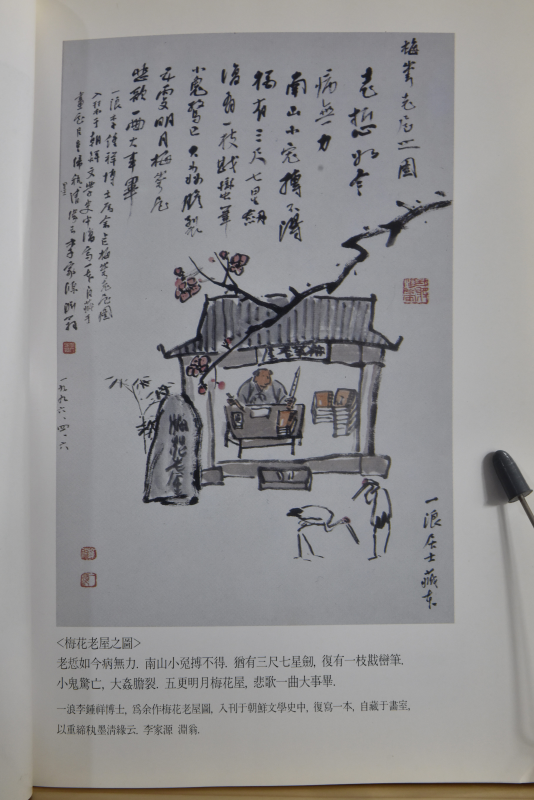 梅花老屋之圖
老悊如今
病無力
南山小冤搏不得
猶有三尺七星劍
復有一枝戡巒筆
小鬼驚亡大姦膽裂
五更明月梅花屋
悲歌一曲大事畢
一浪李鍾祥博士爲余作梅花老屋圖
入刊于朝鮮文學史中復寫一本自藏于
畫室以重締執墨清緣云李家源淵翁
一九九六·四·六
梅花老屋
梅花老屋
一浪居士藏本
<梅花老屋之圖>
老悊如今病無力. 南山小冤搏不得. 猶有三尺七星劍, 復有一枝戡巒筆.
小鬼驚亡, 大姦膽裂. 五更明月梅花屋, 悲歌一曲大事畢.
一浪李鍾祥博士, 爲余作梅花老屋圖, 入刊于朝鮮文學史中, 復寫一本, 自藏于畫室,
以重締執墨清緣云. 李家源 淵翁.